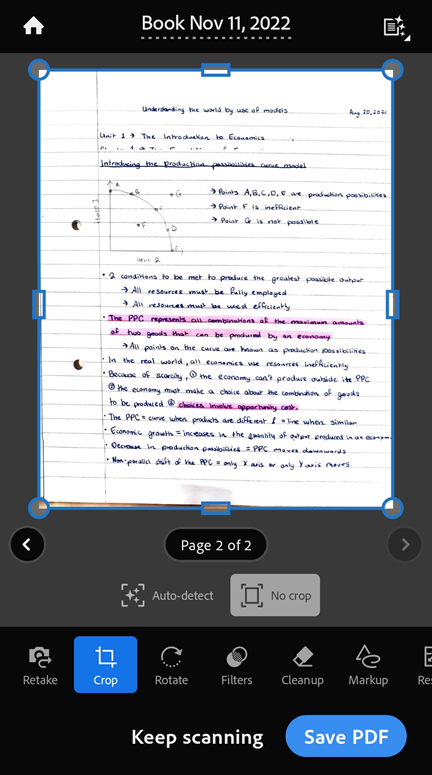 Book Nov 11, 2022
Understanding the world by use of models
Aug 20, 2021
Unit 1 → The Introduction to Economics
Introducing the production possibilities curve model
item 1
A
B
G
C
F
D
E
item 2
→ Points A,B,C,D,E are production possibilities
→ Point F is inefficient
→ Point G is not possible
• 2 conditions to be met to produce the greatest possible output
→ All resources must be fully employed
→ All resources must be used efficiently
• The PPC represents all combinations of the maximum amounts
of two goods that can be produced by an economy
→ All points on the curve are known as production possibilities
• In the real world, all economies use resources inefficiently
• Because of scarcity, ① the economy can't produce outside its PPC
② the economy must make a choice about the combination of goods
to be produced ③ choices involve opportunity cost.
• The PPC = curve when products are different & = line when similar
• Economic growth = increases in the quantity of output produced in an econom
• Decrease in production possibilities = PPC moves downwards
• Non-parallel shift of the PPC = only X axis or only Y axis moves
Page 2 of 2
Auto-detect
No crop
Retake
Crop
Rotate
Filters
Cleanup
Markup
Res
Keep scanning
Save PDF